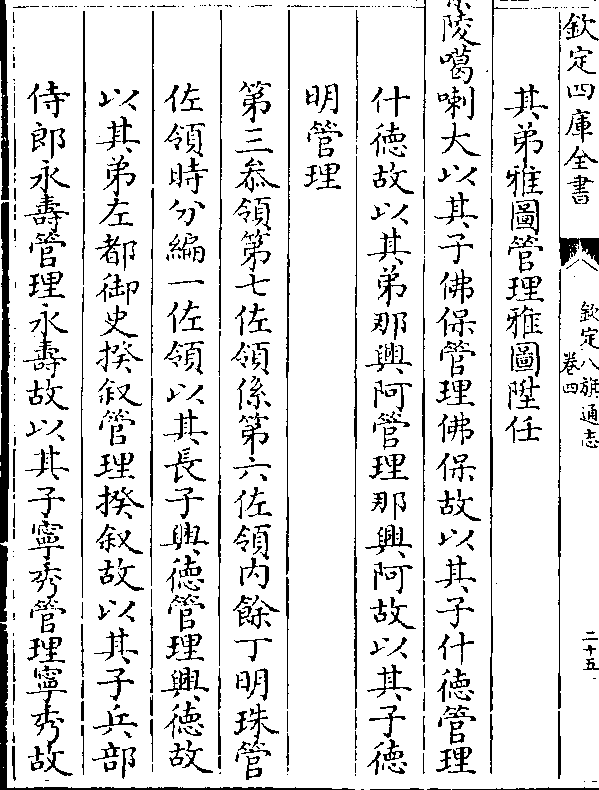 欽定四庫全書
欽定八旗通志
卷四
二十五
其弟雅圖管理雅圖陞任
陵噶喇大以其子佛保管理佛保故以其子什德管理
什德故以其弟那興阿管理那興阿故以其子德
明管理
第三叅領第七佐領係第六佐領内餘丁明珠管
佐領時分編一佐領以其長子興德管理興德故
以其弟左都御史揆叙管理揆叙故以其子兵部
侍郎永壽管理永壽故以其子寧秀管理寧秀故